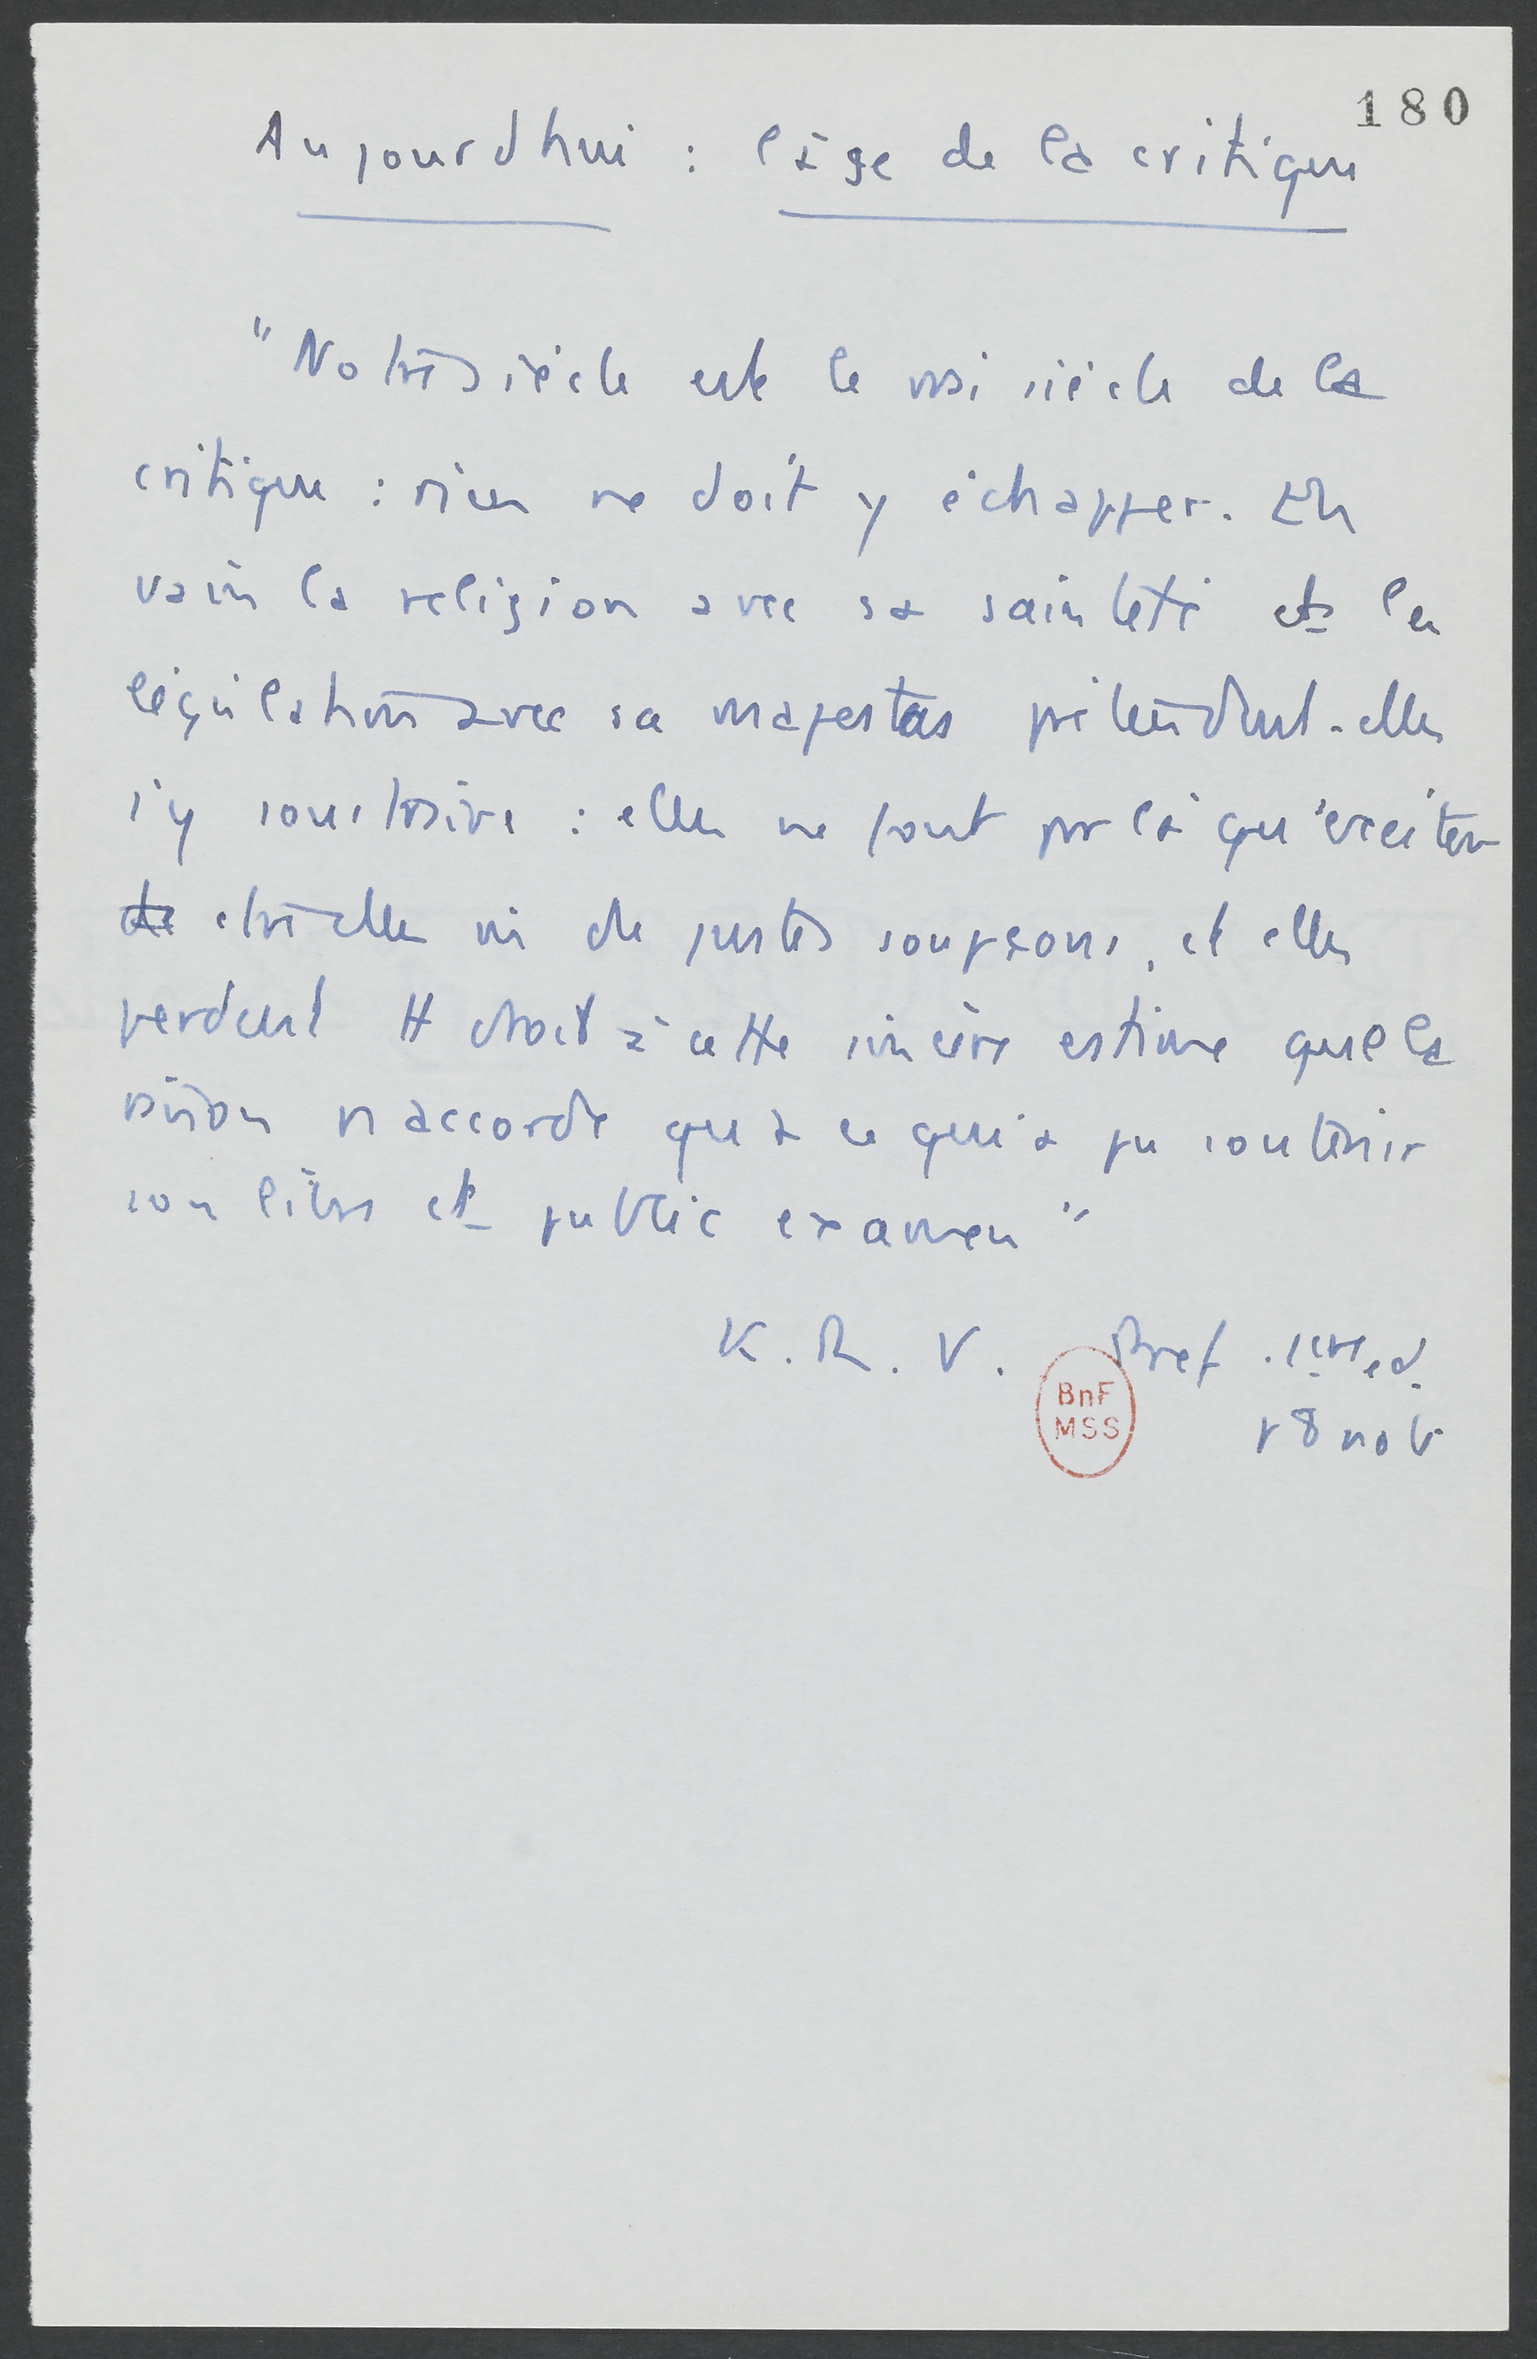 180
Aujourdhui : l'âge de la critique
"Notre siècle est le vrai siècle de la
critique : rien ne doit y échapper. En
vain la religion avec sa sainteté et la
législation avec sa majestas prétendent-elles
s'y soustraire : elles ne font par là qu'exciter
contre elles de justes soupçons, et elles
perdent tt droit à cette sincère estime que la
raison n'accorde qu'à ce qui a pu soutenir
son libre et public examen"
K. R. V. Pref. 1ère ed.
p 8 not
BnF
MSS